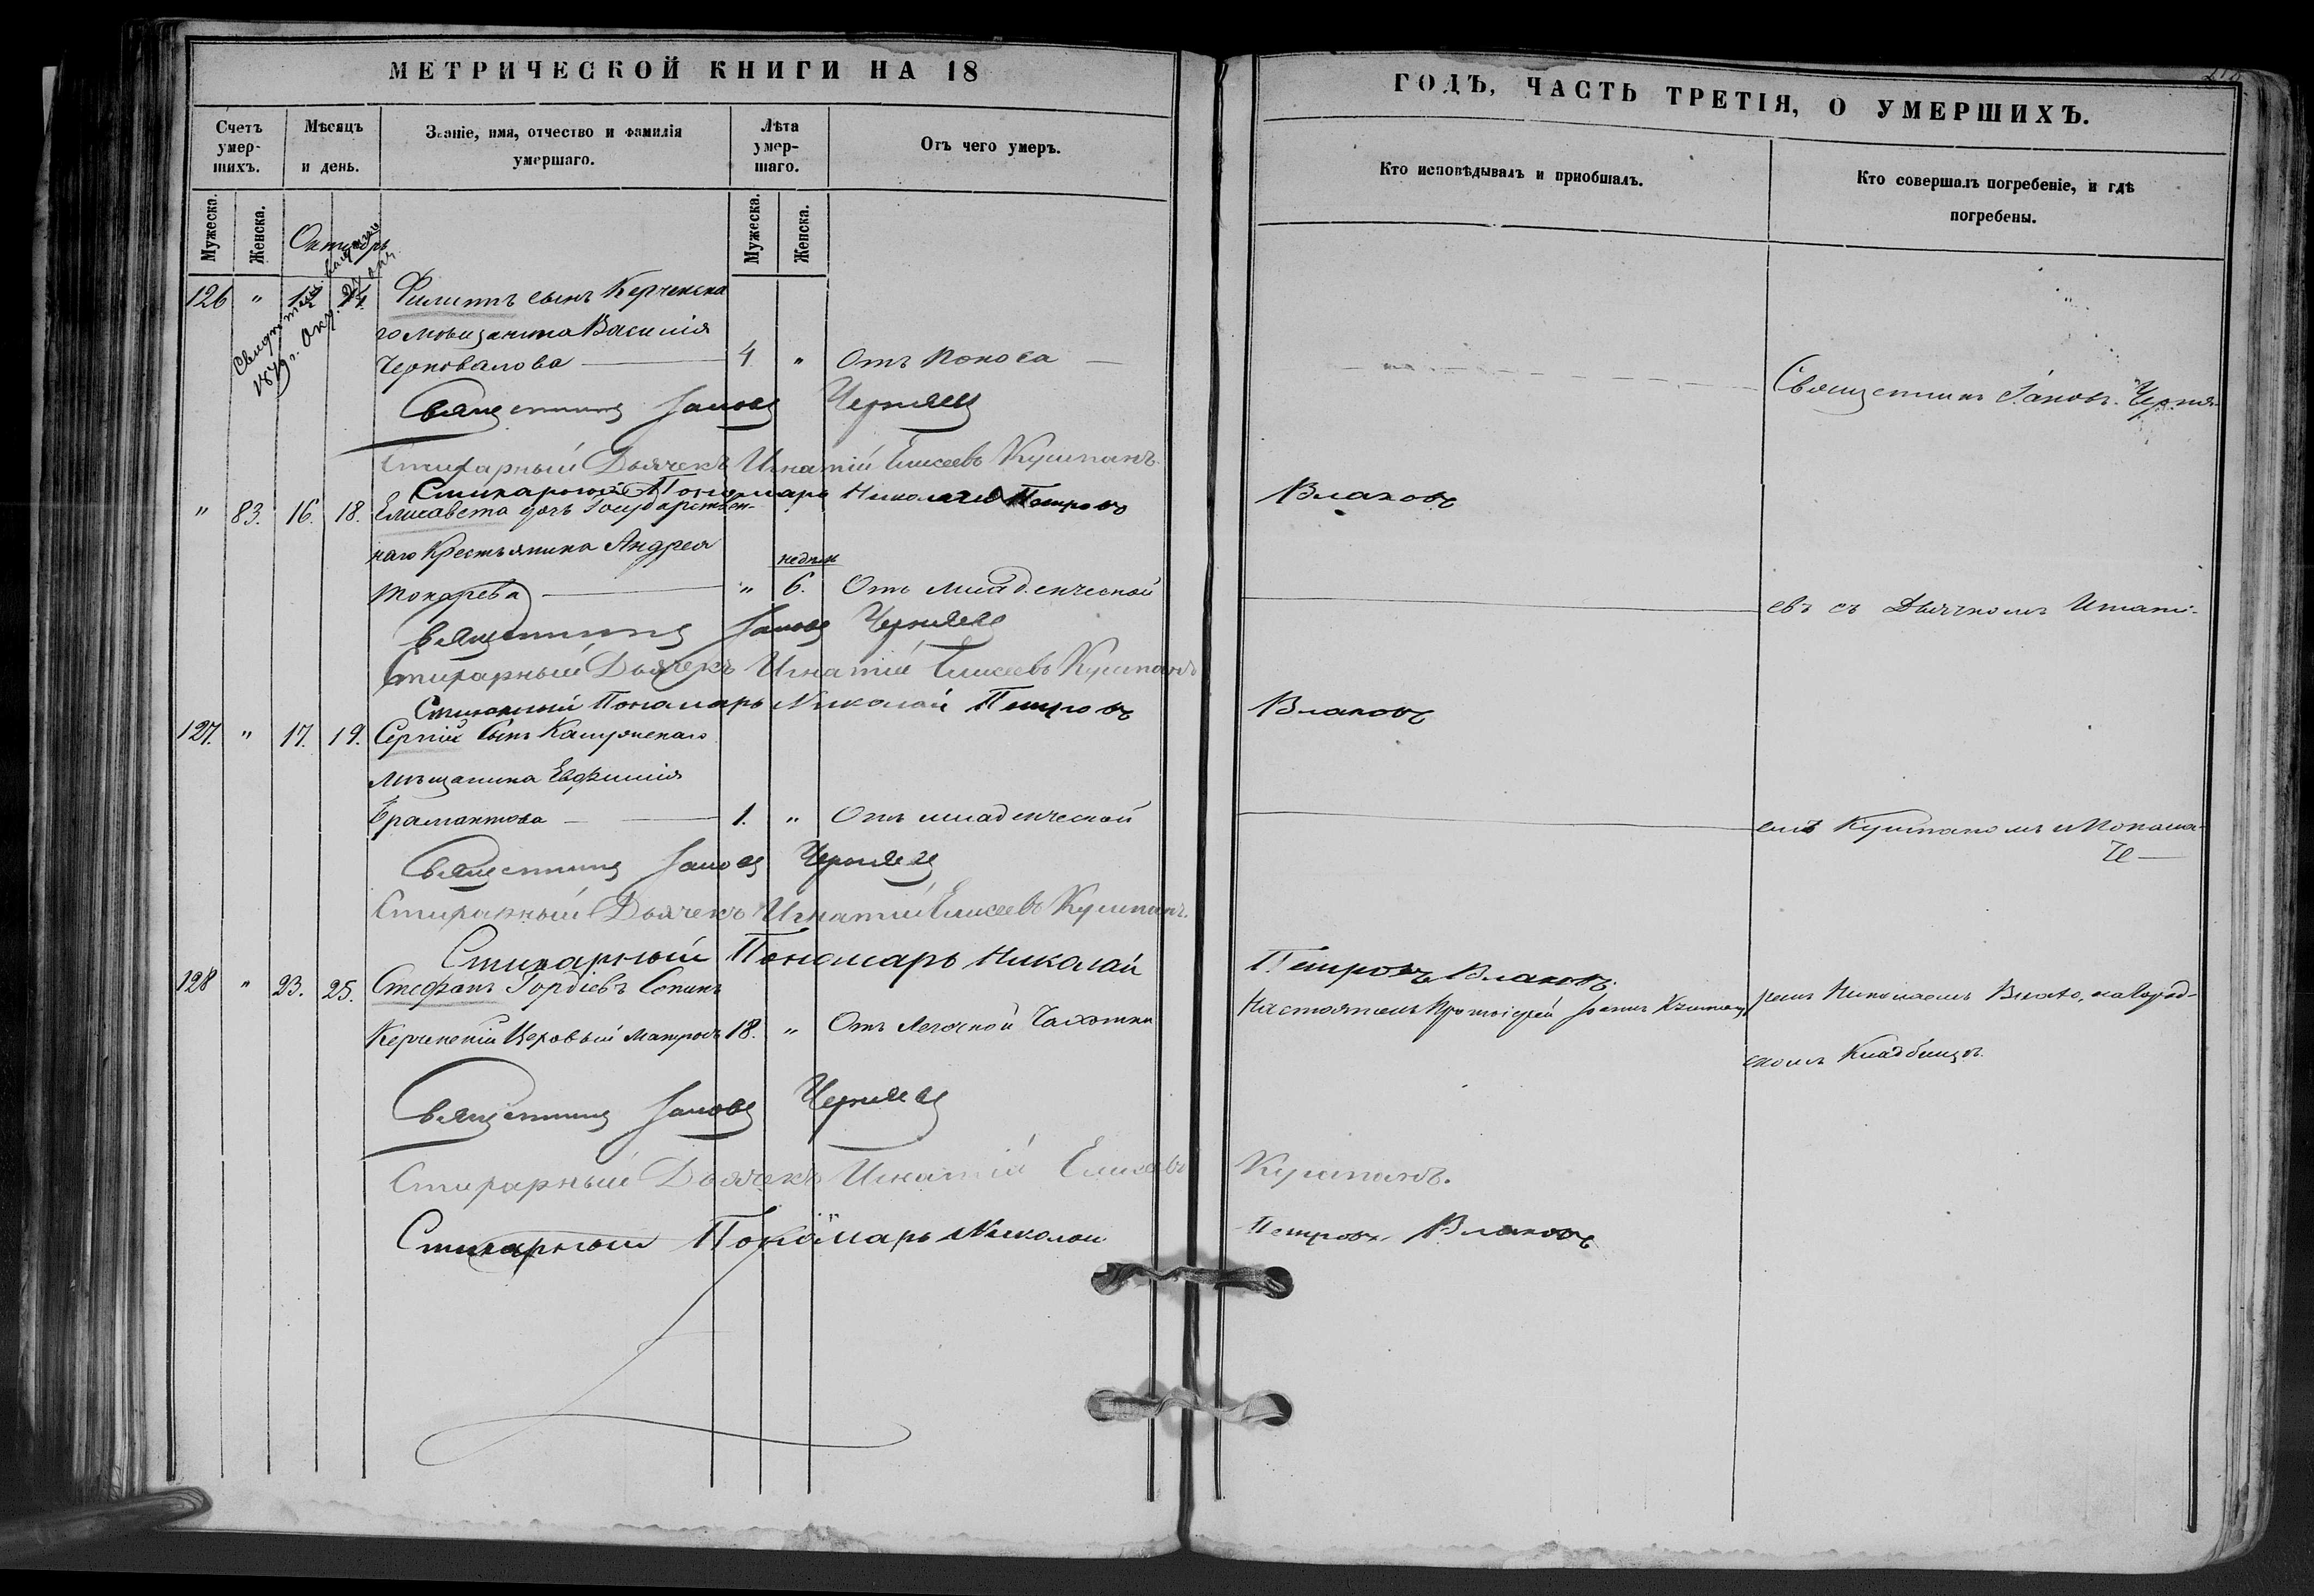 МЕТРИЧЕСКОЙ КНИГИ НА 18
Счетъ умер-шихъ.
Мѣсяцъ и день.
Званіе, имя, отчество и фамилія умершаго.
Лѣта умер-шаго.
Отъ чего умеръ.
Мужеска.
Женска.
Октябрь
Мужеска.
Женска.
126 " 12 14 Филиппъ сынъ Керченска
го мѣщанина Василія
Черновалова 4 " Отъ поноса
Священникъ Іаковъ Черняевъ
Стихарный Дьячекъ Игнатій Елисеевъ Кушпанъ
Стихарный Пономарь Николай Петровъ
" 83. 16. 18. Елисавета дочь Государствен-
наго Крестьянина Андрея
недѣль
Токарева " 6. Отъ младенческой
Священникъ Іаковъ Черняевъ
Стихарный Дьячекъ Игнатій Елисеевъ Кушпанъ
Стихарный Пономарь Николай Петровъ
127. " 17. 19. Сергій сынъ Калужскаго
мѣщанина Евфимія
1. " Отъ младенческой
Священникъ Іаковъ Черняевъ
Стихарный Дьячекъ Игнатій Елисеевъ Кушпанъ.
Стихарный Пономарь Николай
128 " 23. 25. Стефанъ Гордіевъ
Керченскій Матросъ 18. " Отъ легочной чахотки
Священникъ Іаковъ Черняевъ
Стихарный Дьячекъ Игнатій Елисеевъ
Стихарный Пономарь Николай
ГОДЪ, ЧАСТЬ ТРЕТІЯ, О УМЕРШИХЪ.
Кто исповѣдывалъ и приобщалъ.
Кто совершалъ погребеніе, и гдѣ погребены.
Священникъ Іаковъ Черня-
Влаховъ
евъ съ Дьячкомъ Игнаті-
Влаховъ
емъ Кушпаномъ и Понома-
Петровъ Влаховъ.
Настоятель Протоіерей Іоаннъ
ремъ Николаемъ Влахо, на Город-
скомъ Кладбищѣ.
Кушпанъ.
Петровъ Влаховъ